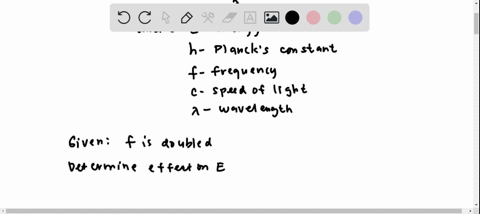 h- Planck's constant
f- frequency
c- speed of light
λ- wavelength
Given: f is doubled
Determine effect on E